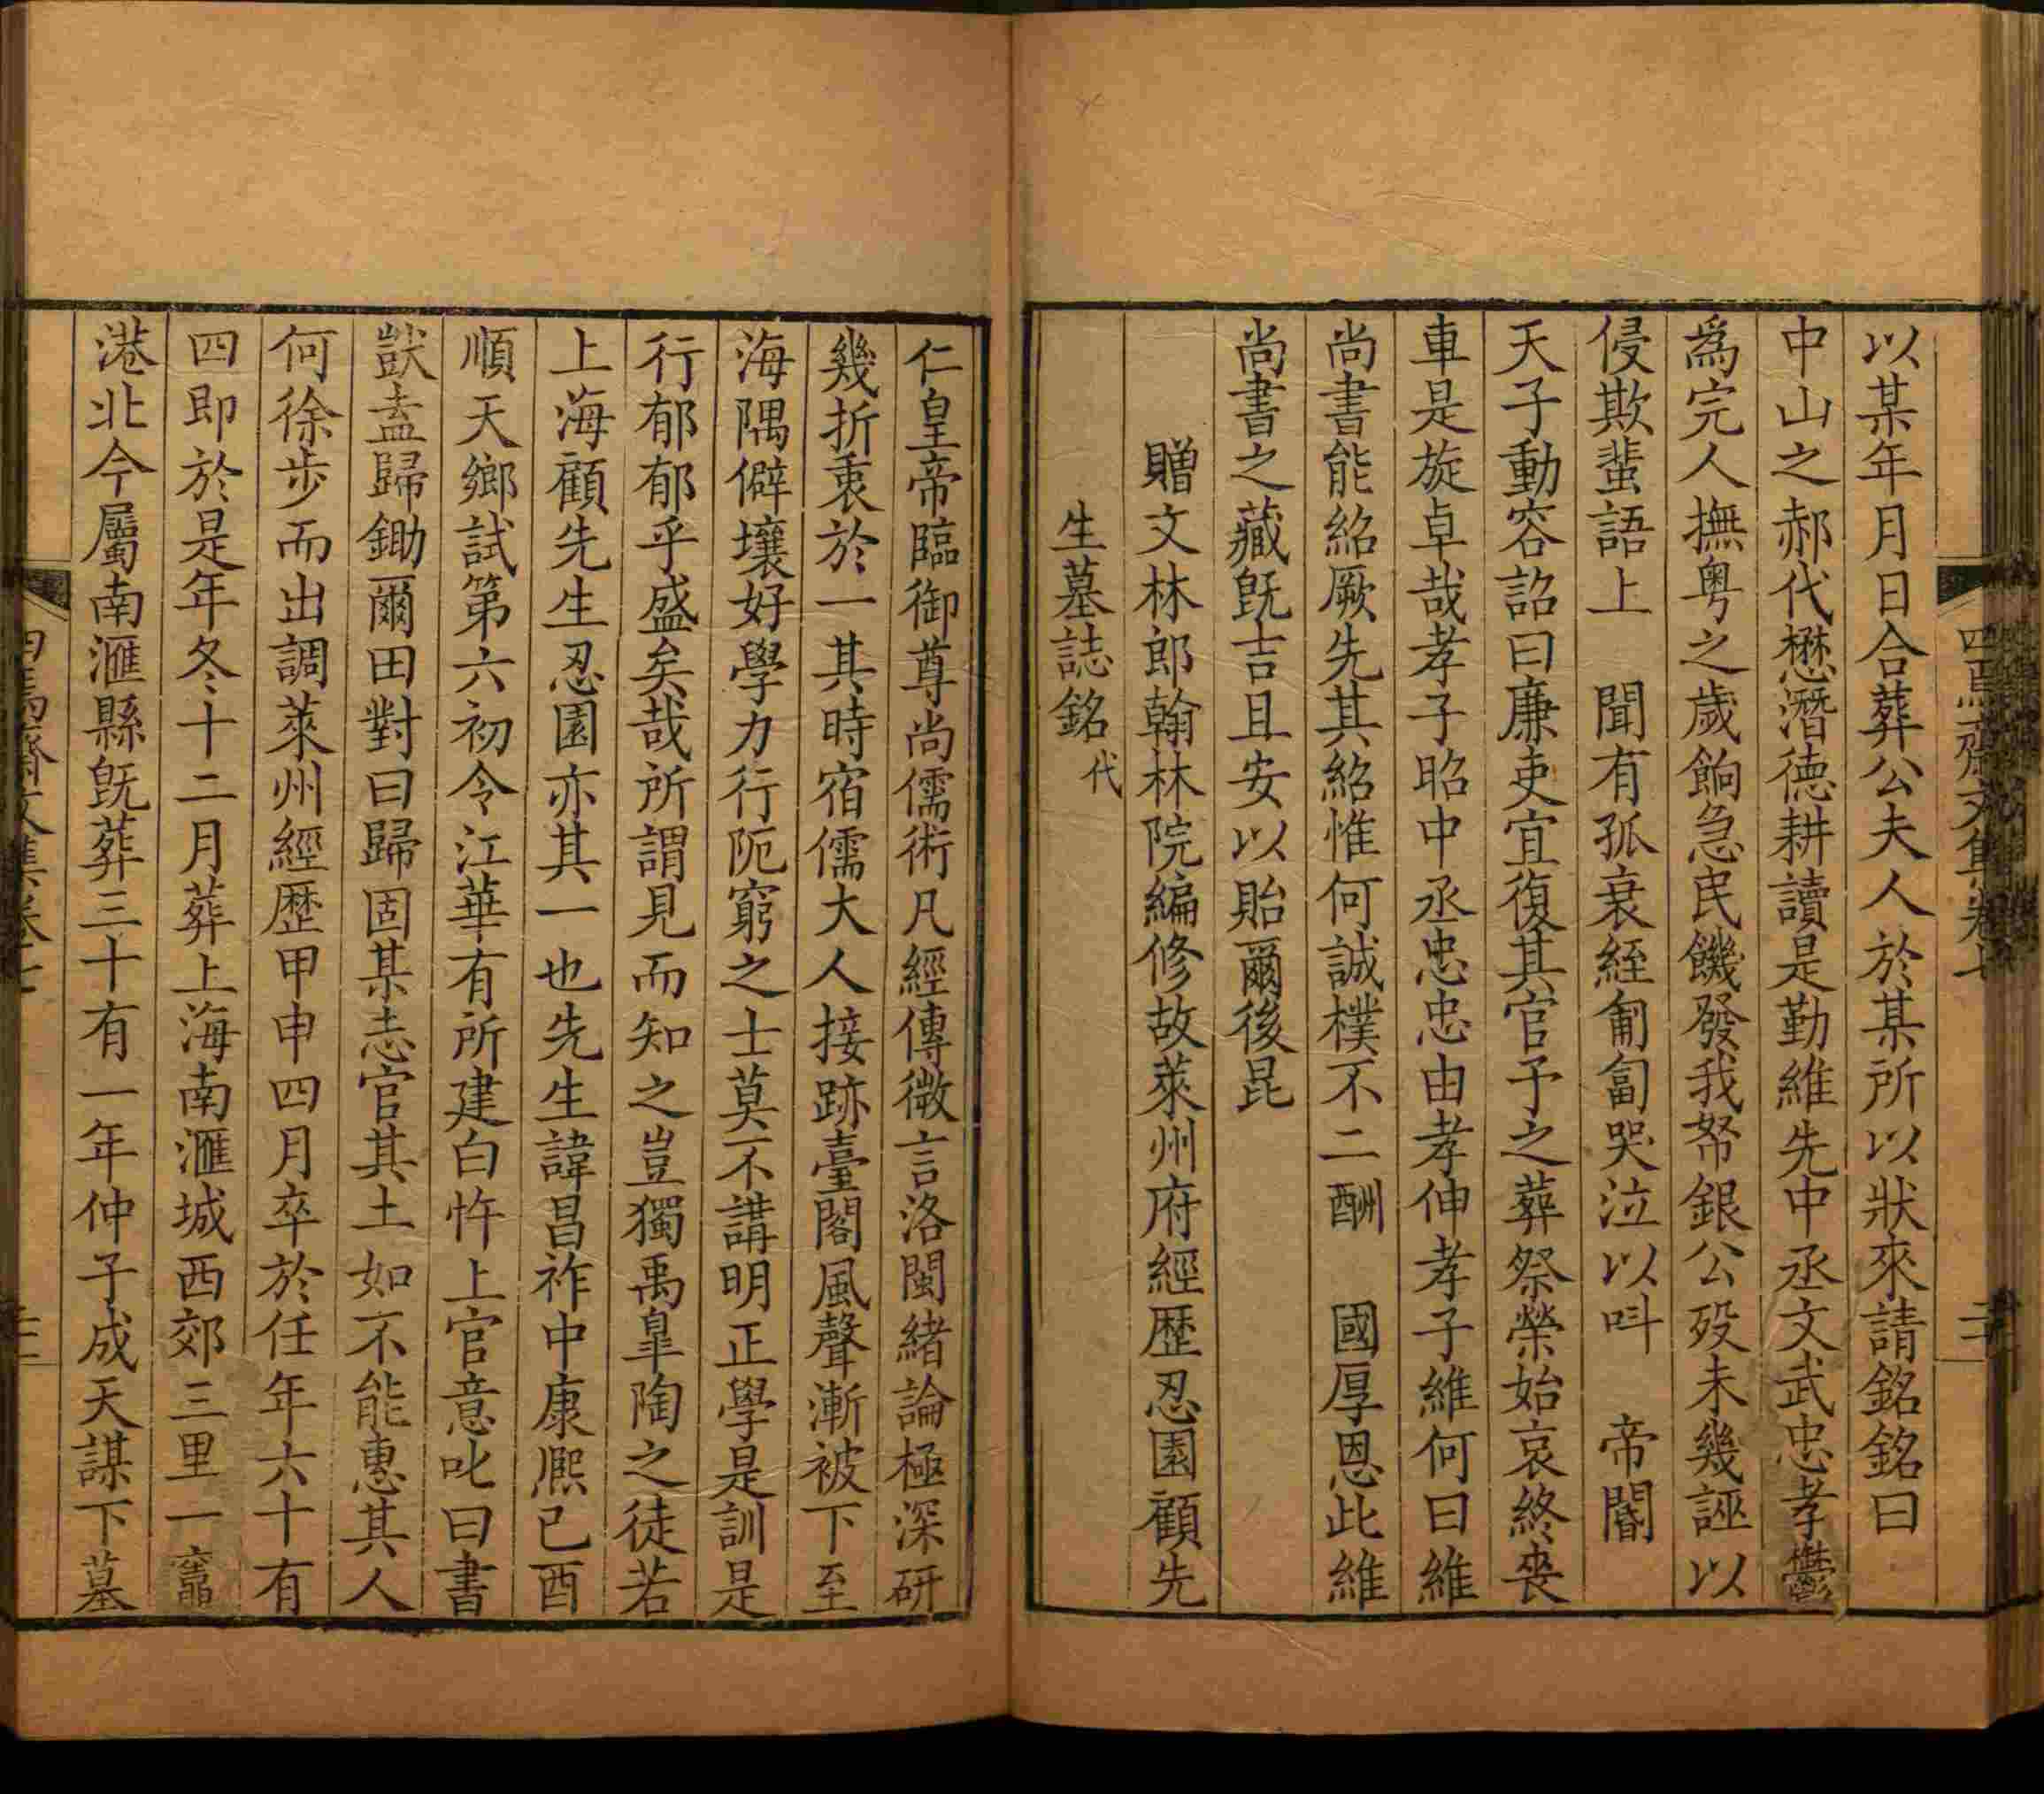 四焉齋文集卷七
以某年月日合葬公夫人於某所以狀來請銘銘曰
中山之郝代懋潛德耕讀是勤維先中丞文武忠孝鬱
爲完人撫粤之歲餉急民饑發我帑銀公歿未幾誣以
侵欺蜚語上 聞有孤衰絰匍匐哭泣以呌 帝閽
天子動容詔曰廉吏宜復其官予之葬祭榮始哀終喪
車是旋卓哉孝子昭中丞忠忠由孝伸孝子維何曰維
尚書能紹厥先其紹惟何誠樸不二酬 國厚恩此維
尚書之藏旣吉且安以貽爾後昆
贈文林郎翰林院編修故萊州府經歷忍園顧先
生墓誌銘代
仁皇帝臨御尊尚儒術凡經傳微言洛閩緒論極深研
幾折衷於一其時宿儒大人接跡臺閣風聲漸被下至
海隅僻壤好學力行阨窮之士莫不講明正學是訓是
行郁郁乎盛矣哉所謂見而知之豈獨禹臯陶之徒若
上海顧先生忍園亦其一也先生諱昌祚中康熙己酉
順天鄉試第六初令江華有所建白忤上官意叱曰書
獃盍歸鋤爾田對曰歸固某志官其土如不能惠其人
何徐步而出調萊州經歷甲申四月卒於任年六十有
四即於是年冬十二月葬上海南滙城西郊三里一竈
港北今屬南滙縣旣葬三十有一年仲子成天謀下墓
四焉齋文集卷七